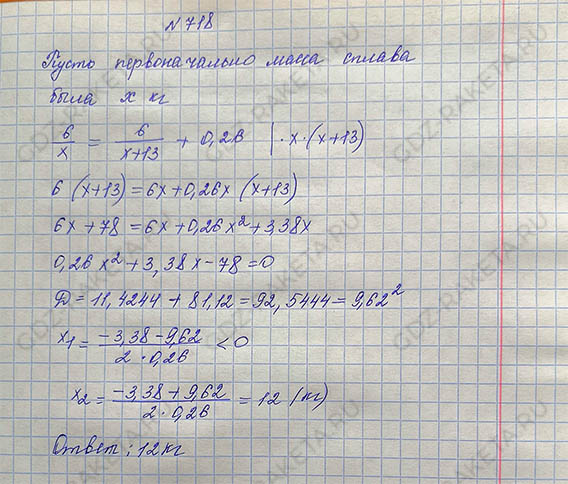 № 718
Пусть первоначально масса сплава
была x кг
6/x = 6/(x+13) + 0,26 | · x · (x+13)
6 (x+13) = 6x + 0,26x (x+13)
6x + 78 = 6x + 0,26x² + 3,38x
0,26x² + 3,38x - 78 = 0
D = 11,4244 + 81,12 = 92,5444 = 9,62²
x₁ = (-3,38 - 9,62)/(2 · 0,26) < 0
x₂ = (-3,38 + 9,62)/(2 · 0,26) = 12 (кг)
Ответ: 12 кг
GDZ-RAKETA.RU